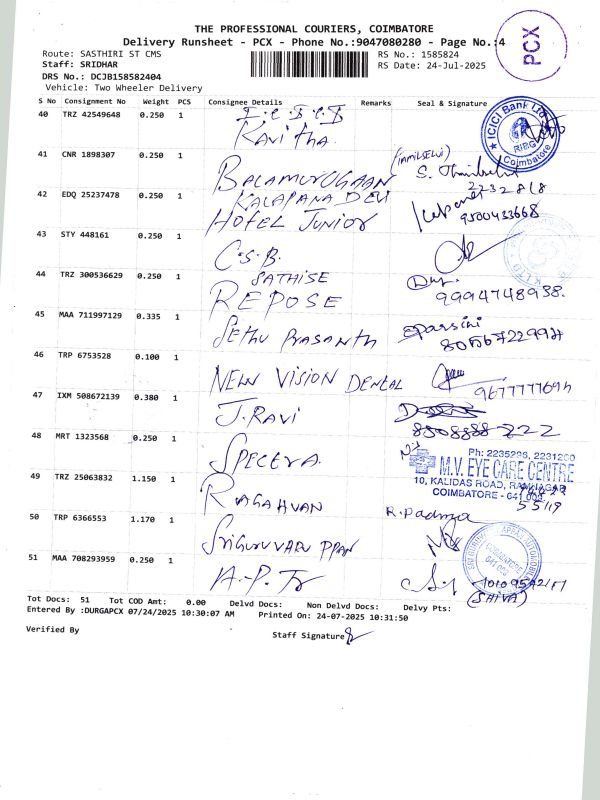 THE PROFESSIONAL COURIERS, COIMBATORE
Delivery Runsheet - PCX - Phone No.:9047080280 - Page No.:4
PCX
Route: SASTHIRI ST CMS
Staff: SRIDHAR
DRS No.: DCJB158582404
Vehicle: Two Wheeler Delivery
RS No.: 1585824
RS Date: 24-Jul-2025
S No Consignment No Weight PCS Consignee Details Remarks Seal & Signature
40 TRZ 42549648 0.250 1 I.C.I.C.I
Kavitha.
ICICI Bank Ltd
RIBG
Coimbatore
41 CNR 1898307 0.250 1 BALAMURUGAAN
2232818
42 EDQ 25237478 0.250 1 KALAPANA DEVI
HOTEL JUNIOR
9500433668
43 STY 448161 0.250 1 C.S.B.
44 TRZ 300536629 0.250 1 SATHISE
REPOSE
9994748938.
45 MAA 711997129 0.335 1 SETHU PRASANTH
46 TRP 6753528 0.100 1 NEW VISION DENTAL
47 IXM 508672139 0.380 1 J.RAVI
8508888-222
48 MRT 1323568 0.250 1 SPECTRA.
Ph: 2235296, 2231200
M.V. EYE CARE CENTRE
10, KALIDAS ROAD, RAMNAGAR
COIMBATORE - 641 009
49 TRZ 25063832 1.150 1 RAGAHVAN
R. Padma
50 TRP 6366553 1.170 1 SRIGURUVARU PPAN
51 MAA 708293959 0.250 1 A.P.Tr
(SHIVA)
Tot Docs: 51 Tot COD Amt: 0.00 Delvd Docs: Non Delvd Docs: Delvy Pts:
Entered By :DURGAPCX 07/24/2025 10:30:07 AM Printed On: 24-07-2025 10:31:50
Verified By Staff Signature